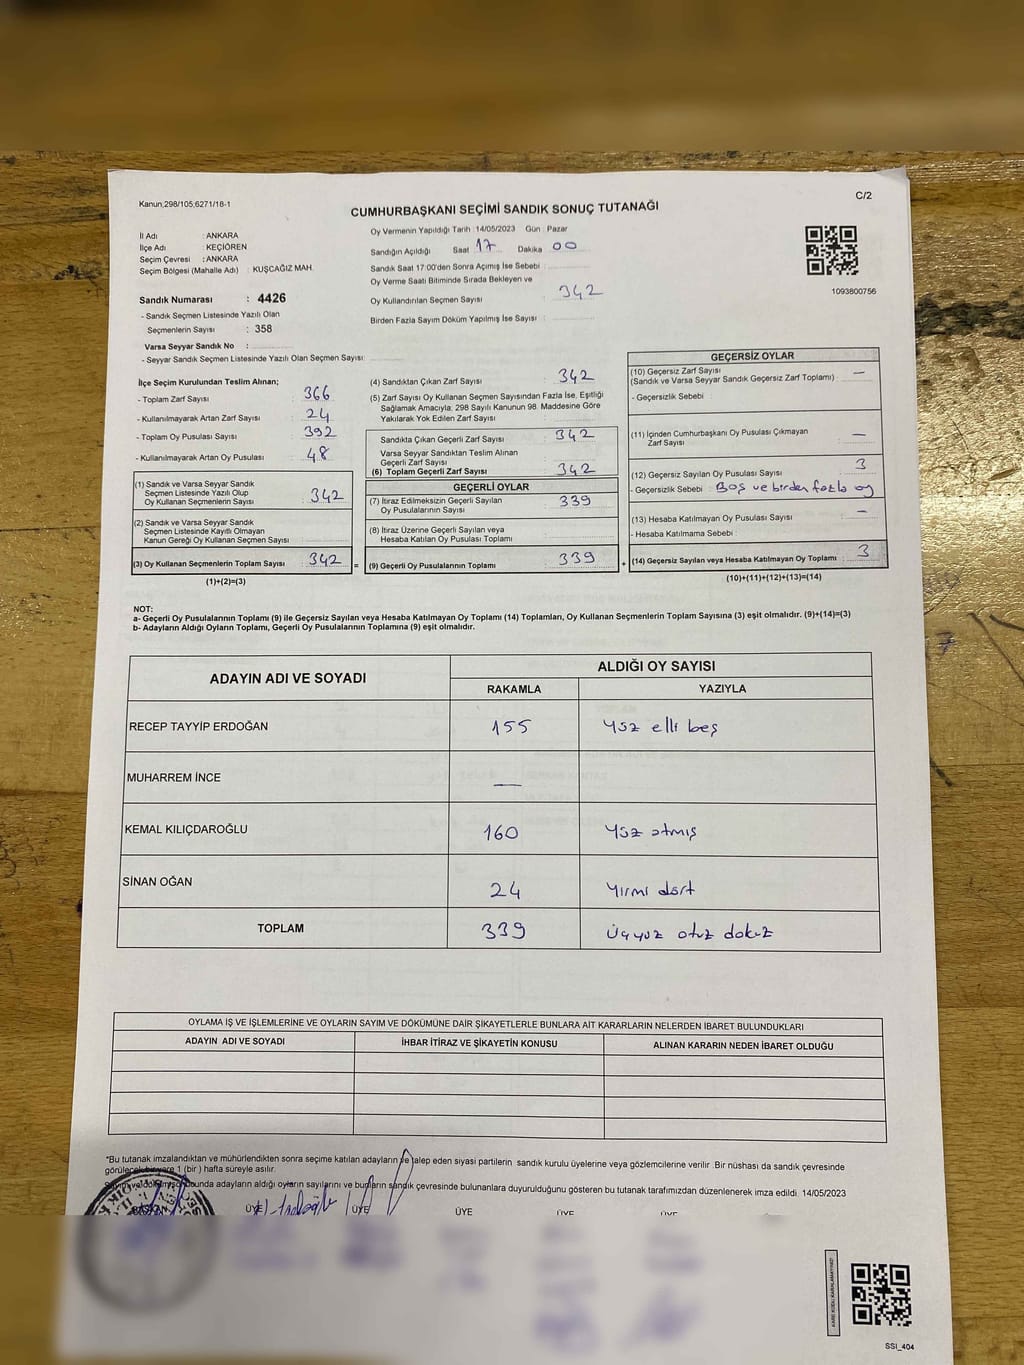 Kanun,298/105,6271/18-1
C/2
CUMHURBAŞKANI SEÇİMİ SANDIK SONUÇ TUTANAĞI
İl Adı : ANKARA
İlçe Adı : KEÇİÖREN
Seçim Çevresi : ANKARA
Seçim Bölgesi (Mahalle Adı) : KUŞCAĞIZ MAH.
Sandık Numarası : 4426
- Sandık Seçmen Listesinde Yazılı Olan
Seçmenlerin Sayısı : 358
Varsa Seyyar Sandık No :
- Seyyar Sandık Seçmen Listesinde Yazılı Olan Seçmen Sayısı:
Oy Vermenin Yapıldığı Tarih : 14/05/2023 Gün : Pazar
Sandığın Açıldığı Saat 17 Dakika 00
Sandık Saat 17:00'den Sonra Açımış İse Sebebi :
Oy Verme Saati Bitiminde Sırada Bekleyen ve
Oy Kullandırılan Seçmen Sayısı : 342
Birden Fazla Sayım Döküm Yapılmış İse Sayısı :
1093800756
İlçe Seçim Kurulundan Teslim Alınan;
- Toplam Zarf Sayısı : 366
- Kullanılmayarak Artan Zarf Sayısı : 24
- Toplam Oy Pusulası Sayısı : 392
- Kullanılmayarak Artan Oy Pusulası : 48
(1) Sandık ve Varsa Seyyar Sandık
Seçmen Listesinde Yazılı Olup
Oy Kullanan Seçmenlerin Sayısı : 342
(2) Sandık ve Varsa Seyyar Sandık
Seçmen Listesinde Kayıtlı Olmayan
Kanun Gereği Oy Kullanan Seçmen Sayısı :
(3) Oy Kullanan Seçmenlerin Toplam Sayısı : 342
(1)+(2)=(3)
(4) Sandıktan Çıkan Zarf Sayısı : 342
(5) Zarf Sayısı Oy Kullanan Seçmen Sayısından Fazla İse, Eşitliği
Sağlamak Amacıyla; 298 Sayılı Kanunun 98. Maddesine Göre
Yakılarak Yok Edilen Zarf Sayısı :
Sandıkta Çıkan Geçerli Zarf Sayısı : 342
Varsa Seyyar Sandıktan Teslim Alınan
Geçerli Zarf Sayısı :
(6) Toplam Geçerli Zarf Sayısı : 342
GEÇERLİ OYLAR
(7) İtiraz Edilmeksizin Geçerli Sayılan
Oy Pusulalarının Sayısı : 339
(8) İtiraz Üzerine Geçerli Sayılan veya
Hesaba Katılan Oy Pusulası Toplamı :
= (9) Geçerli Oy Pusulalarının Toplamı : 339
GEÇERSİZ OYLAR
(10) Geçersiz Zarf Sayısı
(Sandık ve Varsa Seyyar Sandık Geçersiz Zarf Toplamı) : —
- Geçersizlik Sebebi :
(11) İçinden Cumhurbaşkanı Oy Pusulası Çıkmayan
Zarf Sayısı : —
(12) Geçersiz Sayılan Oy Pusulası Sayısı : 3
- Geçersizlik Sebebi : Boş ve birden fazla oy
(13) Hesaba Katılmayan Oy Pusulası Sayısı : —
- Hesaba Katılmama Sebebi :
+ (14) Geçersiz Sayılan veya Hesaba Katılmayan Oy Toplamı : 3
(10)+(11)+(12)+(13)=(14)
NOT:
a- Geçerli Oy Pusulalarının Toplamı (9) ile Geçersiz Sayılan veya Hesaba Katılmayan Oy Toplamı (14) Toplamları, Oy Kullanan Seçmenlerin Toplam Sayısına (3) eşit olmalıdır. (9)+(14)=(3)
b- Adayların Aldığı Oyların Toplamı, Geçerli Oy Pusulalarının Toplamına (9) eşit olmalıdır.
ADAYIN ADI VE SOYADI
ALDIĞI OY SAYISI
RAKAMLA YAZIYLA
RECEP TAYYİP ERDOĞAN 155 Yüz elli beş
MUHARREM İNCE —
KEMAL KILIÇDAROĞLU 160 Yüz atmış
SİNAN OĞAN 24 Yirmi dört
TOPLAM 339 Üçyüz otuz dokuz
OYLAMA İŞ VE İŞLEMLERİNE VE OYLARIN SAYIM VE DÖKÜMÜNE DAİR ŞİKAYETLERLE BUNLARA AİT KARARLARIN NELERDEN İBARET BULUNDUKLARI
ADAYIN ADI VE SOYADI İHBAR İTİRAZ VE ŞİKAYETİN KONUSU ALINAN KARARIN NEDEN İBARET OLDUĞU
*Bu tutanak imzalandıktan ve mühürlendikten sonra seçime katılan adayların ve talep eden siyasi partilerin sandık kurulu üyelerine veya gözlemcilerine verilir .Bir nüshası da sandık çevresinde
görülecek bir yere 1 (bir ) hafta süreyle asılır.
adayların aldığı oyların sayılarını ve bunların sandık çevresinde bulunanlara duyurulduğunu gösteren bu tutanak tarafımızdan düzenlenerek imza edildi. 14/05/2023
BAŞKAN ÜYE ÜYE ÜYE ÜYE ÜYE
SSI_404